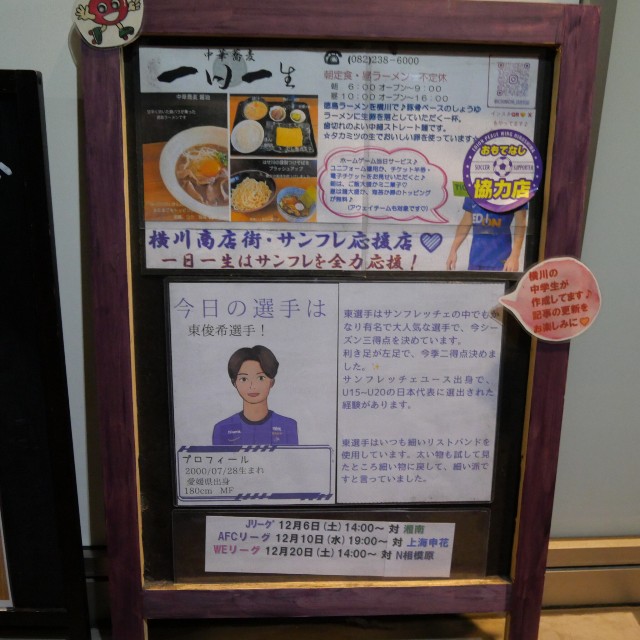 中華蕎麦
一日一生
☎(082)238-6000
朝 6:00オープン〜9:00
昼 10:00オープン〜16:00
徳島ラーメンを横川で♪豚骨ベースのしょうゆ
ラーメンに生卵を落としていただく一杯。
歯切れのよい中細ストレート麺です。
☆タカミツの生でおいしい卵を使っています☆
ホームゲーム当日サービス♪
おもてなし
協力店
横川商店街・サンフレ応援店♡
一日一生はサンフレを全力応援!
横川の
中学生が
作成してます♪
記事の更新を
お楽しみに♥
今日の選手は
東俊希選手!
プロフィール
2000/07/28生まれ
愛媛県出身
180cm MF
東選手はサンフレッチェの中でもか
なり有名で大人気な選手で、今シー
ズン三得点を決めています。
利き足が左足で、今季二得点決めま
した。
サンフレッチェユース出身で、
U15~U20の日本代表に選出された
経験があります。
東選手はいつも細いリストバンドを
使用しています。太い物も試して見
たところ細い物に戻して、細い派で
すと言っていました。
Jリーグ 12月6日(土)14:00〜 対 湘南
AFCリーグ 12月10日(水)19:00〜 対 上海申花
WEリーグ 12月20日(土)14:00〜 対 N相模原